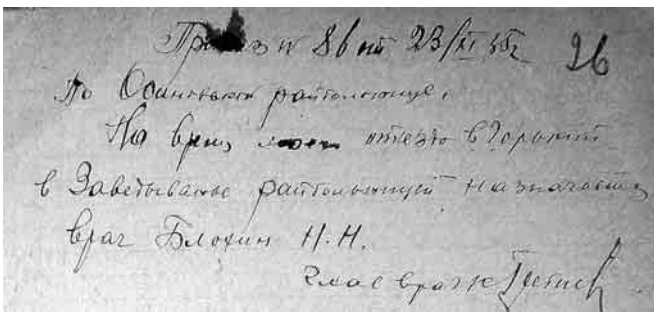 Приказ № 86 от 23/XI 35г. 26
По Осиновской райбольнице.
На время моего отъезда в Горький
в Заведывание райбольницей назначается
врач Блохин Н.Н.
Глав врач